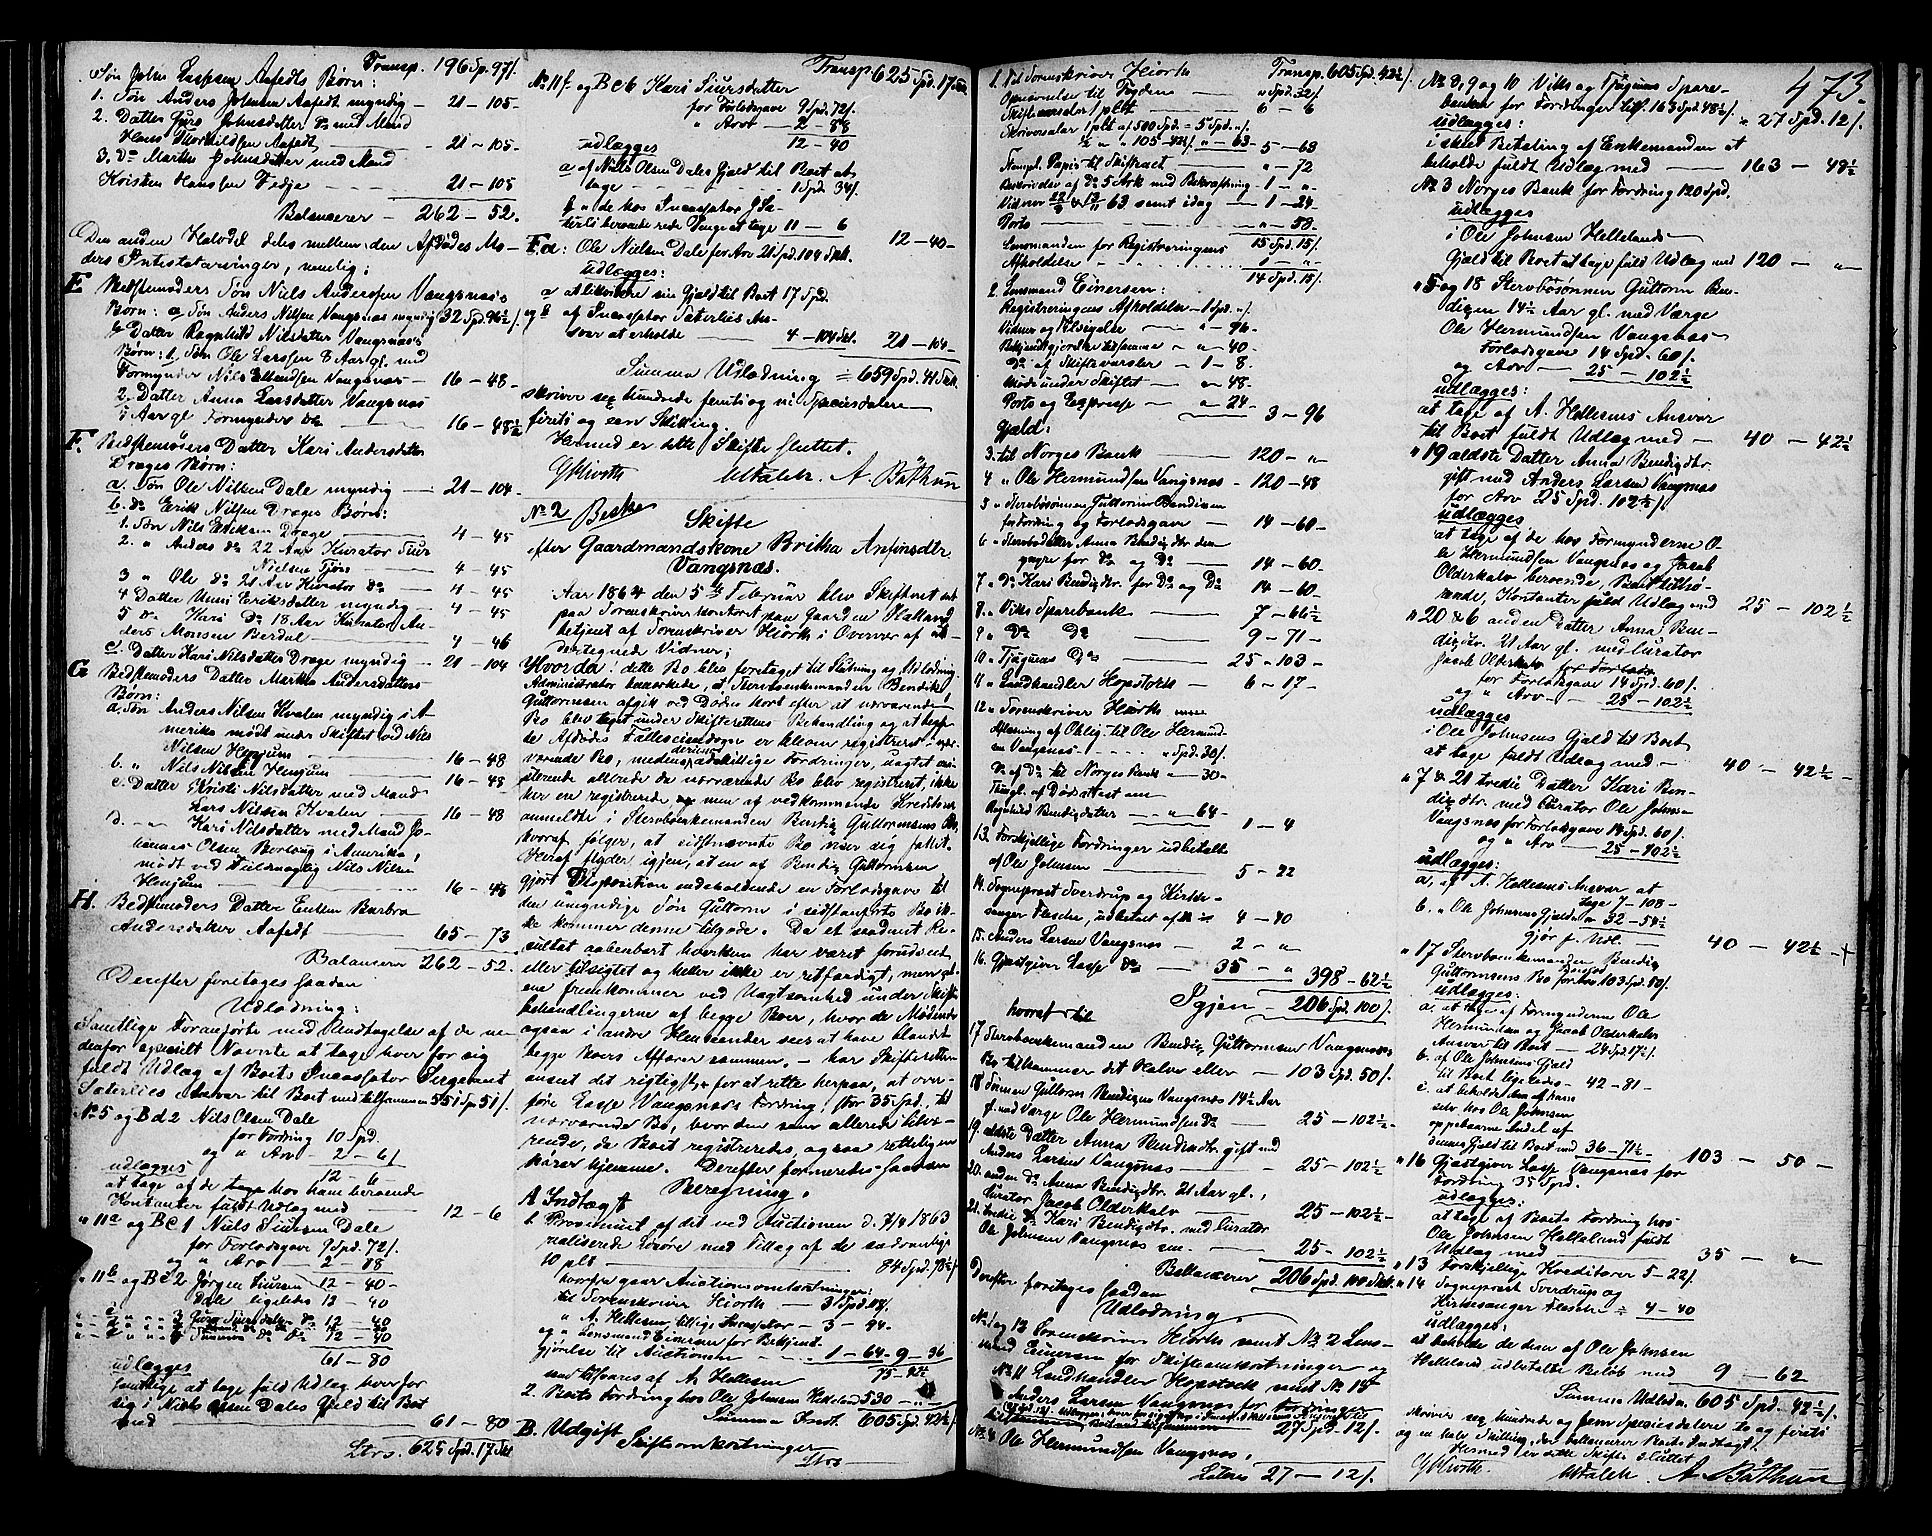 Transp. 196 Sp. 97/.
Søn John Lassesen Aafedts Børn:
1. Søn Anders Johnsen Aafedt myndig — 21 - 105-
2. Datter Guro Johnsdatter do med Mand
Hans Thorkildsen Aafedt — 21 - 105-
3. Do Martha Johnsdatter med Mand
Kristen Hansen Fedje — 21 - 105
Balancerer — 262 - 52.
Den anden Halvdel deles mellem den Afdødes Mo-
ders Intestatarvinger, nemlig:
E Bedstemoders Søn Niels Andersen Vangsnæs's
Børn: a Søn Anders Nilsen Vangsnæs myndig 32 Spd. 96½/.
b Datter Ragnhild Nilsdatter Vangsnæs's
Børn: 1. Søn Ole Larssen 8 Aar gl. med
Formynder Nils Vangsnæs — 16 - 48-
2. Datter Anna Larsdatter Vangsnæs
Aar gl Formynder do — 16 - 48½
F. Bedstemoders Datter Kari Andersdatter
Drages Børn:
a. Søn Ole Nilsen Dale myndig — 21 - 104-
b. do Erik Nilsen Drages Børn:
1. Søn Nils Eriksen Drage — 4 - 45
2. " Anders do 22 Aar Kurator
Nielsen — 4 - 45
3 " Ole do 21 Aar Kurator do — 4 - 45
4 Datter Unni Eriksdatter myndig — 4 - 45
5 do Kari do 18 Aar Kurator An-
ders Monsen Berdal — 4 - 46
c. Datter Kari Nilsdatter Drage myndig — 21 - 104
G Bedstemoders Datter Martha Andersdatters
Børn:
a. Søn Anders Nilsen Kvalen myndig i A-
merika mødt under Skiftet ved Nils
Nilsen Henjum — 16 - 48
b. " Nils Nilsen Henjum — 16 - 48
c. Datter Kristi Nilsdatter med Mand
Lars Nilsen Kvalen — 16 - 48
d. — Kari Nilsdatter med Mand Jo-
hannes Olsen i Amerika,
mødt ved Nils Nilsen
Henjum — 16 - 48
H. Bedstemoders Datter Enken Barbra
Andersdatter Aafedt — 65 - 73
Balancerer 262 - 52.
Derefter foretages saadan
Udlodning:
Samtlige Foranførte med Undtagelse af de ne-
denfor specielt Nævnte at tage hver for sig
fuldt Udlæg af Boets Incassator Sergeant
Sæterlies Ansvar til Boet med tilsammen 551 Sp 51/.
No 5 og Bd 2 Nils Olsen Dale
for Fordring 10 Spd.
og " Arv — 2 - 61
udlægges 12 - 6
at tage af de hos ham beroende
Kontanter fuldt Udlæg med — 12 - 6
" 11a og Bc 1 Niels Siursen Dale
for Forlodsgave 9 Spd. 72/.
og " Arv — 2 - 88
" 11b og Bc 2 Jørgen Siursen 12 - 40-
Dale ligeledes 12 - 40
" " 3 Guro Siursdatter do 12 - 40
" " 4 do do 12 - 40
udlægges 61 - 80
samtlige at tage fuld Udlæg hver for
sig i Niels Olsen Dales Gjeld til Boet
med — 61 - 80
Ltrs. 625 Spd. 17 Sk
Transp 625 Spd. 17 Sk
No 11f og Bc 6 Kari Siursdatter
for Forlodsgave 9 Spd. 72/.
" Arv — 2 - 88
udlægges 12 - 40
a af Niels Olsen Dales Gjeld til Boet at
tage — 1 Spd. 34/.
b " de hos Incassator Sæ-
terlie beroende rede Penge at tage 11 - 6
12 - 40-
Fa: Ole Nielsen Dale for Arv 21 Spd. 104 Sk.
udlægges:
a at likvidere sin Gjeld til Boet 17 Spd.
og b af Incassator Sæterlies An-
svar at erholde — 4 - 104 Sk. 21 - 104-
Summa Udlodning = 659 Spd. 41 Sk.
skriver sex hundrede femti og ni Speciesdalere
firti og een Skilling.
Hermed er dette Skifte sluttet.
G Hiorth A Bøthun
No 2 Beske
Skifte
efter Gaardmandskone Britha Ansfinsdtr
Vangsnæs.
Aar 1864 den 5te Februar blev Skifteret sat
paa Sorenskriverkontoret paa Gaarden
betjent af Sorenskriver Hiorth i Overvær af un-
dertegnede Vidner;
Hvorda: dette Bo blev foretaget til Slutning og Udlodning.
Administrator bemærkede, at Stervboenkemanden Bendik
Guttormsen afgik ved Døden kort efter at nærværende
Bo blev taget under Skifterettens Behandling og at beg-
ge Afdødes Fælleseiendogn er bleven registreret i nær-
værende Bo, medens derimod adskillige Fordringer, uagtet exi-
sterende allerede da nærværende Bo blev registreret, ikke
her ere registrerede men af vedkommende Kreditorer
anmeldte i Stervboenkemanden Bendix Guttormsens Bo,
hvoraf følger, at sidstnævnte Bo viser sig fallit.
Heraf flyder igjen, at en af Bendix Guttormsen
gjort Disposition indeholdende en Forlodsgave til
den umyndige Søn Guttorm i sidstanførte Bo ik-
ke kommer denne tilgode. Da et saadant Re-
sultat aabenbart hverken har været forudseet
eller tilsigtet og heller ikke er retfærdigt, men al-
ene fremkommer ved Uagtsomhed under Skifte-
behandlingerne af begge Boer, hvor de Mødende
ogsaa i andre Henseender sees at have blandet
begge Boers Affærer sammen, — har Skifteretten
anseet det rigtigst, for at rette herpaa, at over-
føre Lasse Vangsnæs's Fordring, stor 35 Spd., til
nærværende Bo, hvor den som allerede tilvæ-
rende, da Boet registreredes, ogsaa rettelig
hører hjemme. Derefter formeredes saadan
Beregning.
A Indtægt
1. Provenuet af det ved Auctionen d. 7/4 1863
realiserede Løsøre med Tillæg af de sædvanlige
10 pCt — 84 Spd. 78½/.
herfra gaar Auctionsomkostninger:
til Sorenskriver Hiorth — 3 Spd. 88/.
" A. Hellesen, tillige Incassator — 3 - 94.
og " Lensmand Einersen for Bekjent-
gjørelse til Auctionen — 1 - 64 - 9 - 36
som tilsvares af A. Hellesen 75 - 42½
2. Boets Fordring hos Ole Johnsen Helleland 530 - "
Summa Indt. 605 Spd. 42½/.
B. Udgift
Skifteomkostninger
Ltrs
Transp. 605 Spd. 42½/.
1. Til Sorenskriver Hiorth
Opnævnelse til Fogden — " Spd. 32/.
Skiftesalær 1 pCt — 6 - 6
Skriversalær 1 pCt af 500 Spd. = 5 Spd. "/.
½ " 105 - 42½/. " - 63 - 5 - 63
Stempl. Papir til Skiftet — " - 72
Beskrivelse af do 5 Ark med Bekræftning — 1 - ".
Vidner 63 samt idag — 1 - 24-
Porto — " - 58.
Lensmanden for Registreringens 15 Spd. 15/.
Afholdelse — 1 - "
14 Spd. 15/.
2. Lensmand Einersen:
Registreringens Afholdelse — 1 Spd. "/.
Vidner og Tilsigelse — " - 96.
Bekjendtgjørelser tilsamme — " - 40.
do af Skiftevarsler — 1 - 8.
Møde under Skiftet — " - 48.
Porto og Expresse — " - 24-
3 - 96
Gjeld:
3. til Norges Bank — 120 - "
4 " Ole Hermundsen Vangsnæs — 120 - 48
5 " Stervbosønnen Guttorm Bendixen
for Fordring og Forlodsgave — 14 - 60-
6 " Stervbodatter Anna Bendixdtr den
yngre for do og do — 14 - 60-
7 " do Kari Bendixdtr. for do og do — 14 - 60.
8. " Viks Sparebank — 7 - 66½
9 " do do — 9 - 71-
10 " Tjugums do — 25 - 103-
11 " Landhandler Hopstock — 6 - 17-
12 " Sorenskriver Hiorth
Aflæsning af Oblig. til Ole Hermund-
sen Vangsnæs — " Spd. 30/.
do af do til Norges Bank " - 30-
Thingl. af Dødsattest om
Ragnhild Bendixdatter — " - 64-
1 - 4
13. Forskjellige Fordringer udbetalte
af Ole Johnsen — 5 - 22
14. Sogneprest Sverdrup og Kirke-
sanger Flesche, udbetalt af do — 4 - 40
15. Anders Larsen Vangsnæs — 2 - "
16. Gjæstgiver Lasse do — 35 - " 398 - 62½
Igjen — 206 Spd. 100/.
hvoraf til
17. Stervboenkemanden Bendix Guttormsen Vangsnæs's
Bo tilkommer det Halve eller — 103 Spd. 50/.
18 Sønnen Guttorm Bendixen Vangsnæs 14½ Aar
g. med Værge Ole Hermundsen do — 25 - 102½
19. ældste Datter Anna Bendixdtr. gift med
Anders Larsen Vangsnæs — 25 - 102½
20. anden do Anna Bendixdtr. 21 Aar gl.,
Curator Jacob Olderkalv — 25 - 102½
21. tredie do Kari Bendixdtr. med Curator
Ole Johnsen Vangsnæs — 25 - 102½
Balancerer 206 Spd. 100 Sk.
Derefter foretages saadan
Udlodning.
No 1 og 12 Sorenskriver Hiorth samt No 2 Lens-
mand Einersen for Skifteomkostninger og
No 11 Landhandler Hopstock samt No 15
Anders Larsen Vangsnæs for Fordringer
27 Spd. 12/.
No 4 Ole Hermundsen Vangsnæs,
Lateris 27 - 12/.
473.
No 8, 9 og 10 Viks og Tjugums Spare-
banker for Fordringer tils. 163 Spd. 48½/. " 27 Spd. 12/.
udlægges:
i skeet Betaling af Enkemanden at
beholde fuldt Udlæg med — 163 - 48½
No 3 Norges Bank for Fordring 120 Spd.
udlægges
i Ole Johnsen Hellelands
Gjæld til Boet at tage fuld Udlæg med 120 - "
" 5 og 18 Stervbosønnen Guttorm Ben-
dixen 14½ Aar gl. med Værge
Ole Hermundsen Vangsnæs
Forlodsgave 14 Spd. 60/.
og Arv — 25 - 102½
udlægges:
at tage af A. Hellesens Ansvar
til Boet fuldt Udlæg med — 40 - 42½
" 19 ældste Datter Anna Bendixdtr.
gift med Anders Larsen Vangsnæs
for Arv 25 Spd. 102½/.
udlægges
at tage af de hos Formynderne O-
le Hermundsen Vangsnæs og Jacob
Olderkalv beroende, Boet tilhø-
rende, Kontanter fuld Udlæg med 25 - 102½
" 20 & 6 anden Datter Anna Ben-
dixdtr. 21 Aar gl. med Curator
Jacob Olderkalv
for Forlodsgave 14 Spd. 60/.
og " Arv — 25 - 102½
udlægges
i Ole Johnsens Gjæld til Boet
at tage fuldt Udlæg med — 40 - 42½
" 7 & 21 tredie Datter Kari Ben-
dixdtr. med Curator Ole Johnsen
Vangsnæs for Forlodsgave 14 Spd. 60/.
og " Arv — 25 - 102½
udlægges:
a, af A. Hellesens Ansvar at
tage 7 - 108-
b. " Ole Johnsens Gjæld " 32 - 54½
gjør f. Udl. — 40 - 42½
" 17 Stervboenkemanden Bendix
Guttormsens Bo for Boslod 103 Spd. 50/.
udlægges:
a. at tage af Formynderne Ole
Hermundsen og Jacob Olderkalvs
Ansvar til Boet — 24 Spd. 17½/.
b. af Ole Johnsens Gjæld
til Boet ligeledes — 42 - 81-
c. at beholde den af ham
selv hos Ole Johnsen
oppebaarne Andel af
dennes Gjæld til Boet med 36 - 71½ 103 - 50-
" 16 Gjæstgiver Lasse Vangsnæs for
Fordring 35 Spd.
udlægges:
at tage af Boets Fordring hos
Ole Johnsen Helleland fuldt
Udlæg med — 35 - "
" 13 Forskjellige Kreditorer 5 - 22/.
" 14 Sogneprest Sverdrup og
Kirkesanger Flesche — 4 - 40
udlægges:
at beholde de dem af Ole Johnsen
Helleland udbetalte Beløb med 9 - 62
Summa Udlodn. 605 Spd. 42½/.
skriver sex hundrede og fem Speciesdalere to og firti
og en halv Skilling, der balancerer Boets Indtægt.
Hermed er dette Skifte sluttet
G Hiorth. A. Bøthun